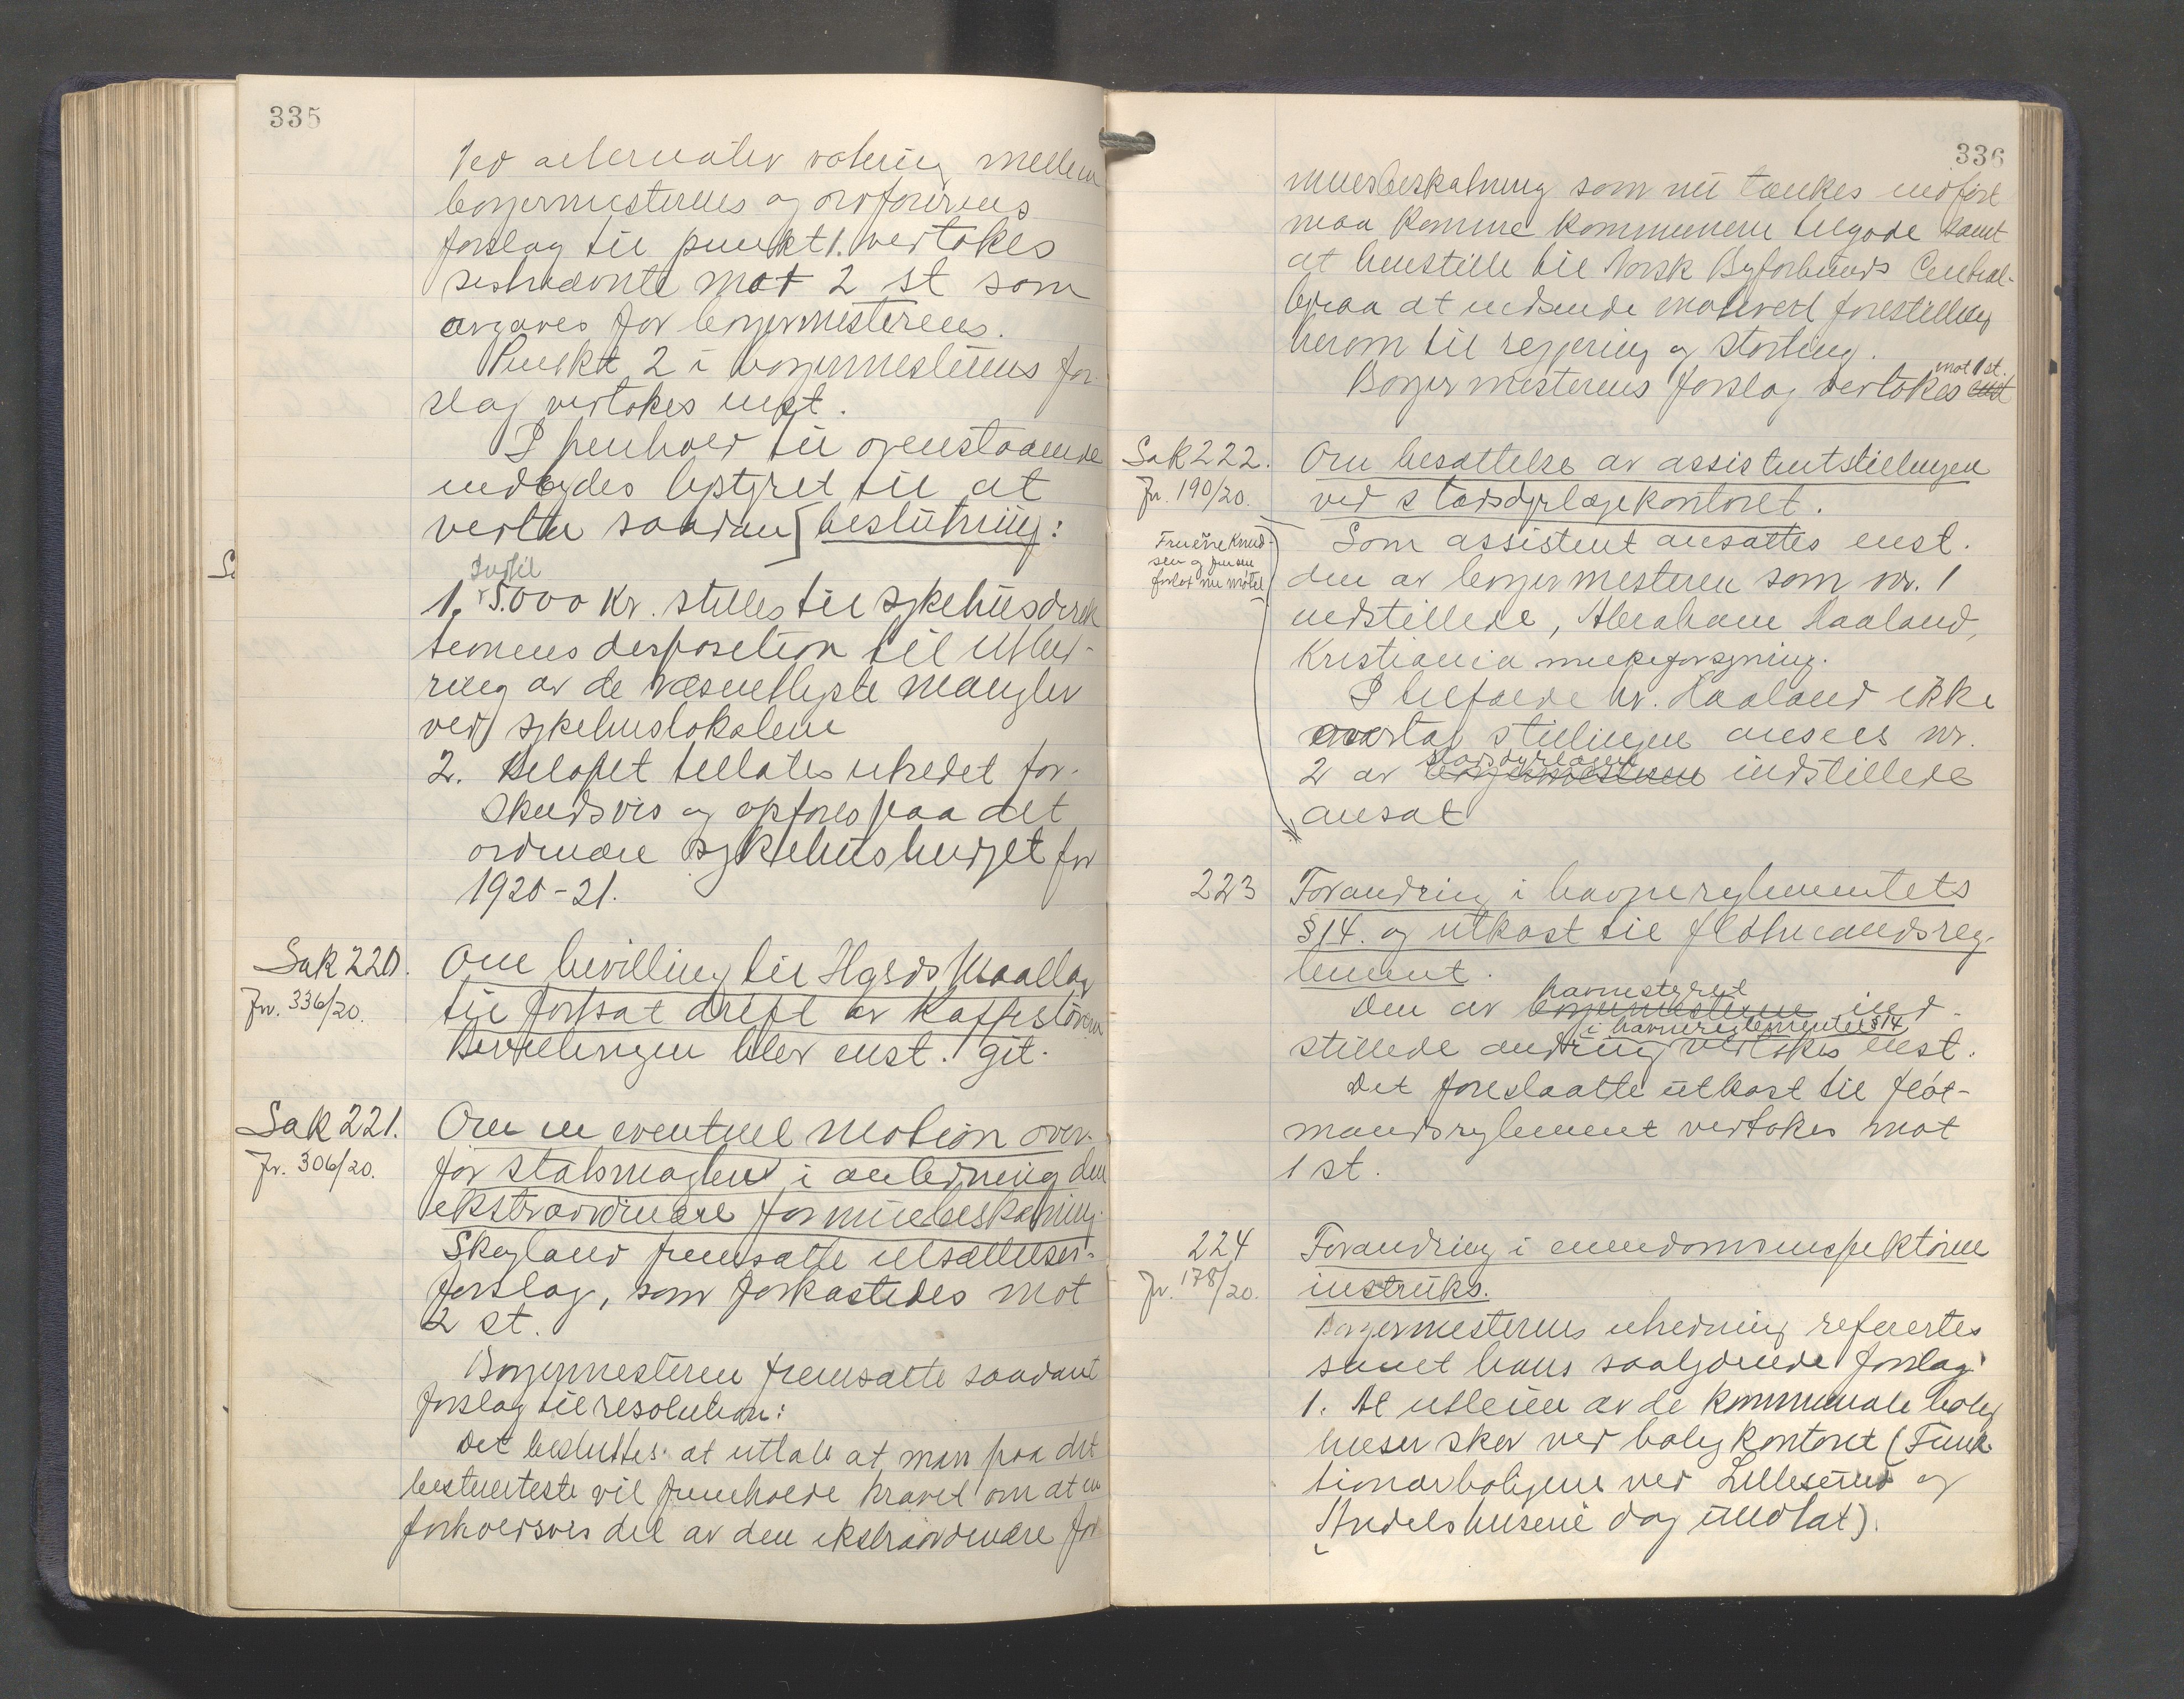 335
Ved alternativ votering mellem
borgermesterens og ordførerens
forslag til punkt 1. vertokes
sistnævnte mot 2 st som
avgaves for borgermesterens.
Punkt 2 i borgermesterens for-
slag vertokes enst.
I henhold til ovenstaaende
indbydes bystyret til at
verta saadan [beslutning:
Indtil
1. 5.000 kr. stilles til sykehusdirek
tionens disposition til utbed-
ring av de væsentligste mangler
ved sykehuslokalene
2. Beløpet tillates utredet for-
skudsvis og opføres paa det
ordinære sykehusbudget for
1920-21.
Sak 220.
Jr. 336/20.
Om bevilling til Hgsds Maallag
til fortsat drift av Kaffistoven
Bevilingen blev enst. git.
Sak 221.
Jr. 306/20.
Om en eventuel motion over-
for statsmagten i anledning den
ekstraordinære formuebeskatning.
Skeyland fremsatte utsættelses-
forslag, som forkastedes mot
2 st.
Borgermesteren fremsatte saadant
forslag til resolution:
Det besluttes at uttale at man paa det
bestemteste vil fremholde kravet om at en
forholdsvis del av den ekstraordinære for
336
muesbeskatning som nu tænkes indført
maa komme kommunene tilgode samt
at henstille til Norsk Byforbunds Central-
byraa at indsende motivert forestilling
herom til regjering og storting.
mot 1 st.
Borgermesterens forslag vertokes enst
Sak 222.
Jr. 190/20.
Om besættelse av assistentstillingen
ved stadsdyrlægekontoret.
Fruerne Knud-
sen og Jensen
forlot nu møtet
Som assistent ansattes enst.
den av borgermesteren som nr. 1
indstillede, Abraham Haaland,
Kristiania melkeforsyning.
I tilfælde hr. Haaland ikke
overtar stillingen ansees nr.
stadsdyrlægen
2 av borgermesteren indstillede
ansat
223
Forandring i havnereglementets
§ 14. og utkast til fløtmandsreg-
lement.
havnestyret
Den av borgermesteren ind-
i havnereglementets § 14
stillede ændring vertokes enst.
Det foreslaatte utkast til fløt-
mandsreglement vertokes mot
1 st.
224
Jr. 178/20.
Forandring i eiendomsinspektørens
instruks.
Borgermesterens utredning referertes
samt hans saalydende forslag:
1. At utleien av de kommunale bolig
huser sker ved boligkontoret (Funk-
tionærboligene ved Lillesund og
Andelshusene dog undtat).